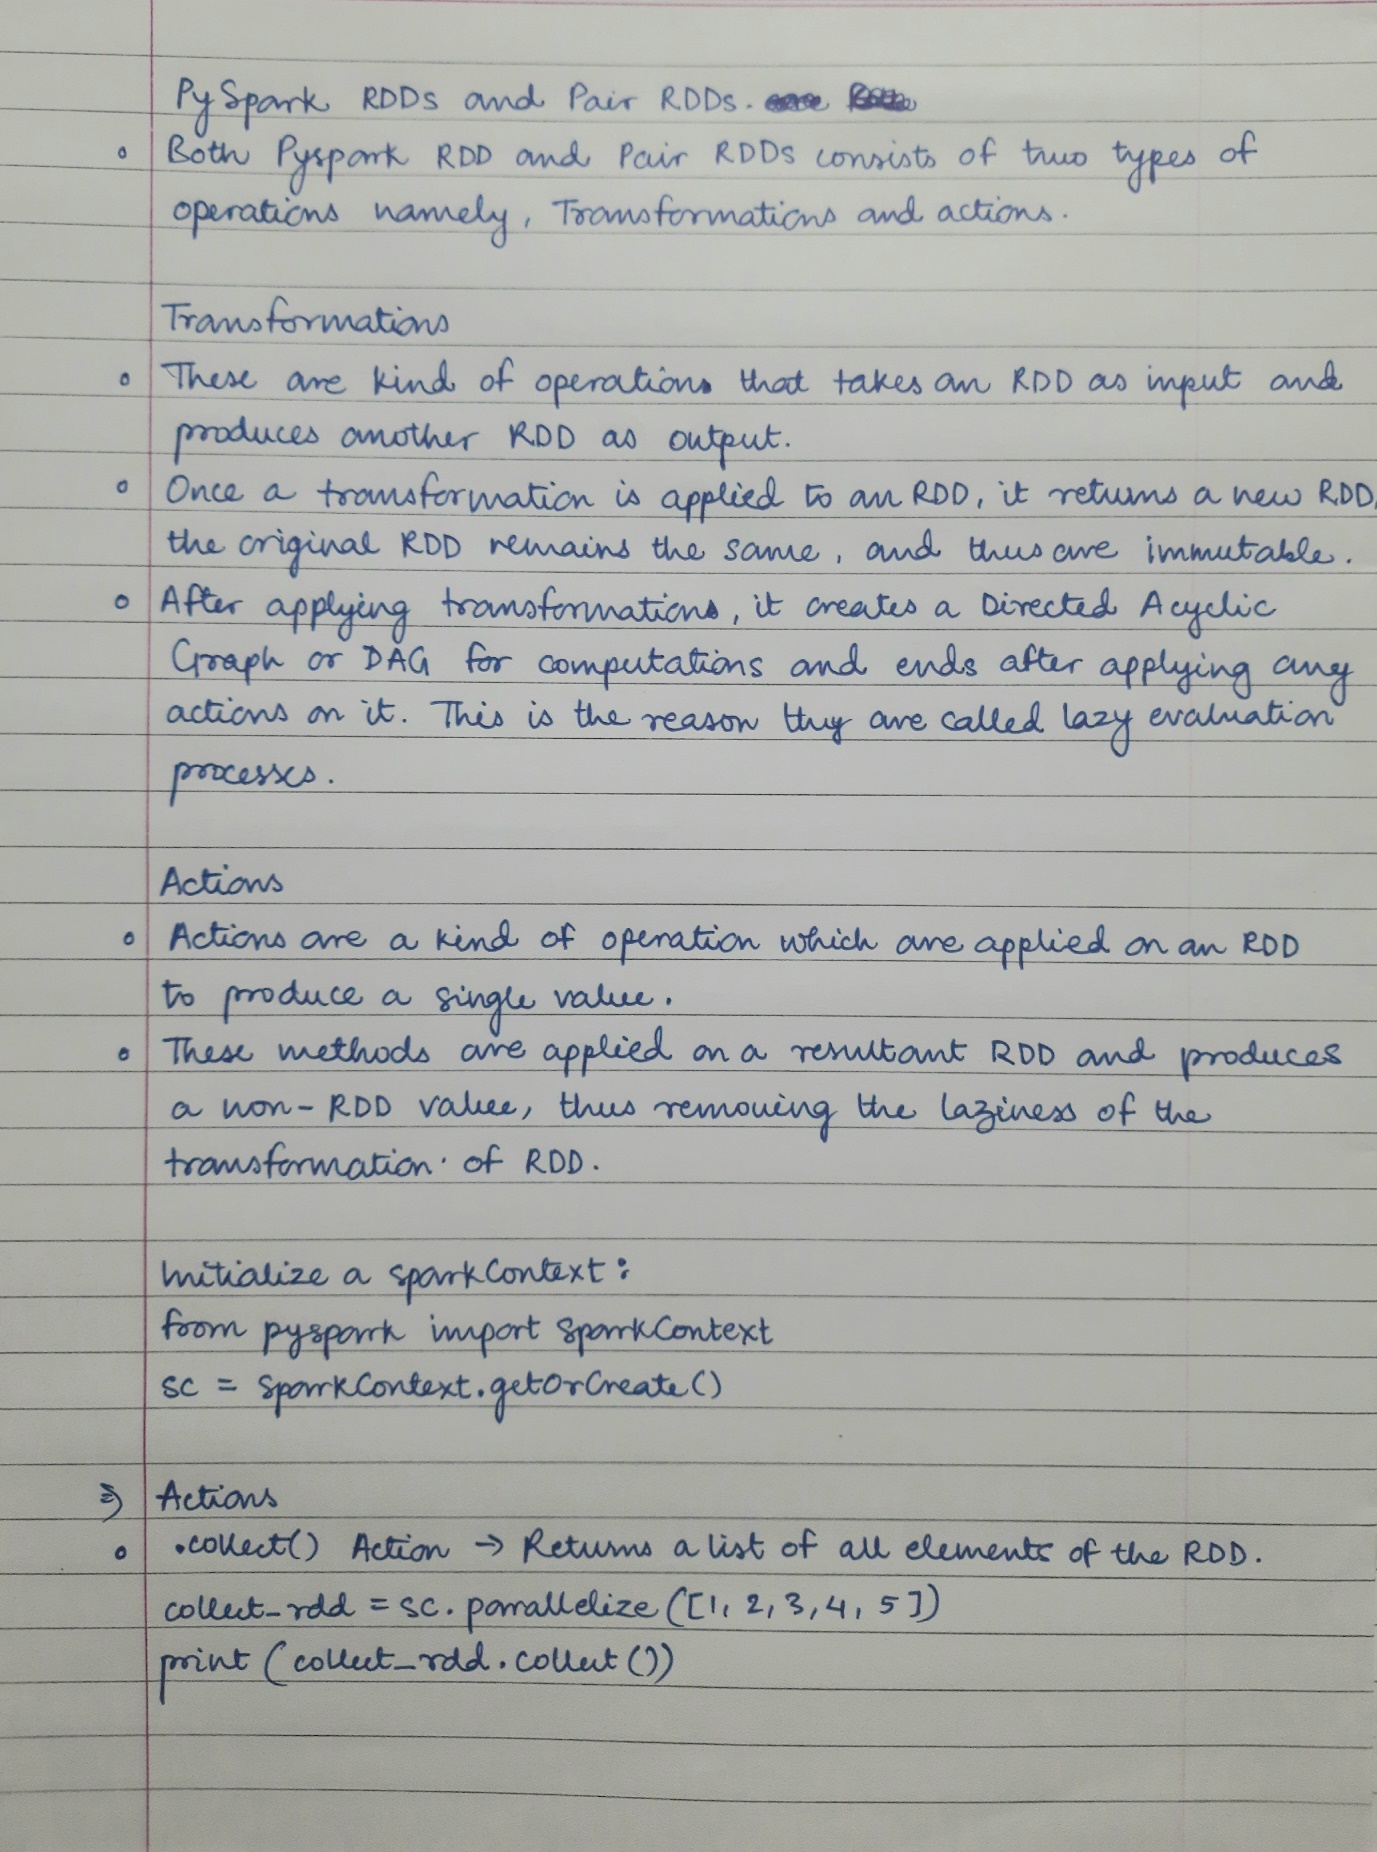 PySpark RDDs and Pair RDDs.
Both Pyspark RDD and Pair RDDs consists of two types of
operations namely, Transformations and actions.
Transformations
These are kind of operations that takes an RDD as input and
produces another RDD as output.
Once a transformation is applied to an RDD, it returns a new RDD,
the original RDD remains the same, and thus are immutable.
After applying transformations, it creates a Directed Acyclic
Graph or DAG for computations and ends after applying any
actions on it. This is the reason they are called lazy evaluation
processes.
Actions
Actions are a kind of operation which are applied on an RDD
to produce a single value.
These methods are applied on a resultant RDD and produces
a non-RDD value, thus removing the laziness of the
transformation of RDD.
Initialize a sparkContext:
from pyspark import SparkContext
sc = SparkContext.getOrCreate()
⇒ Actions
.collect() Action → Returns a list of all elements of the RDD.
collect_rdd = sc.parallelize([1, 2, 3, 4, 5])
print (collect_rdd.collect())